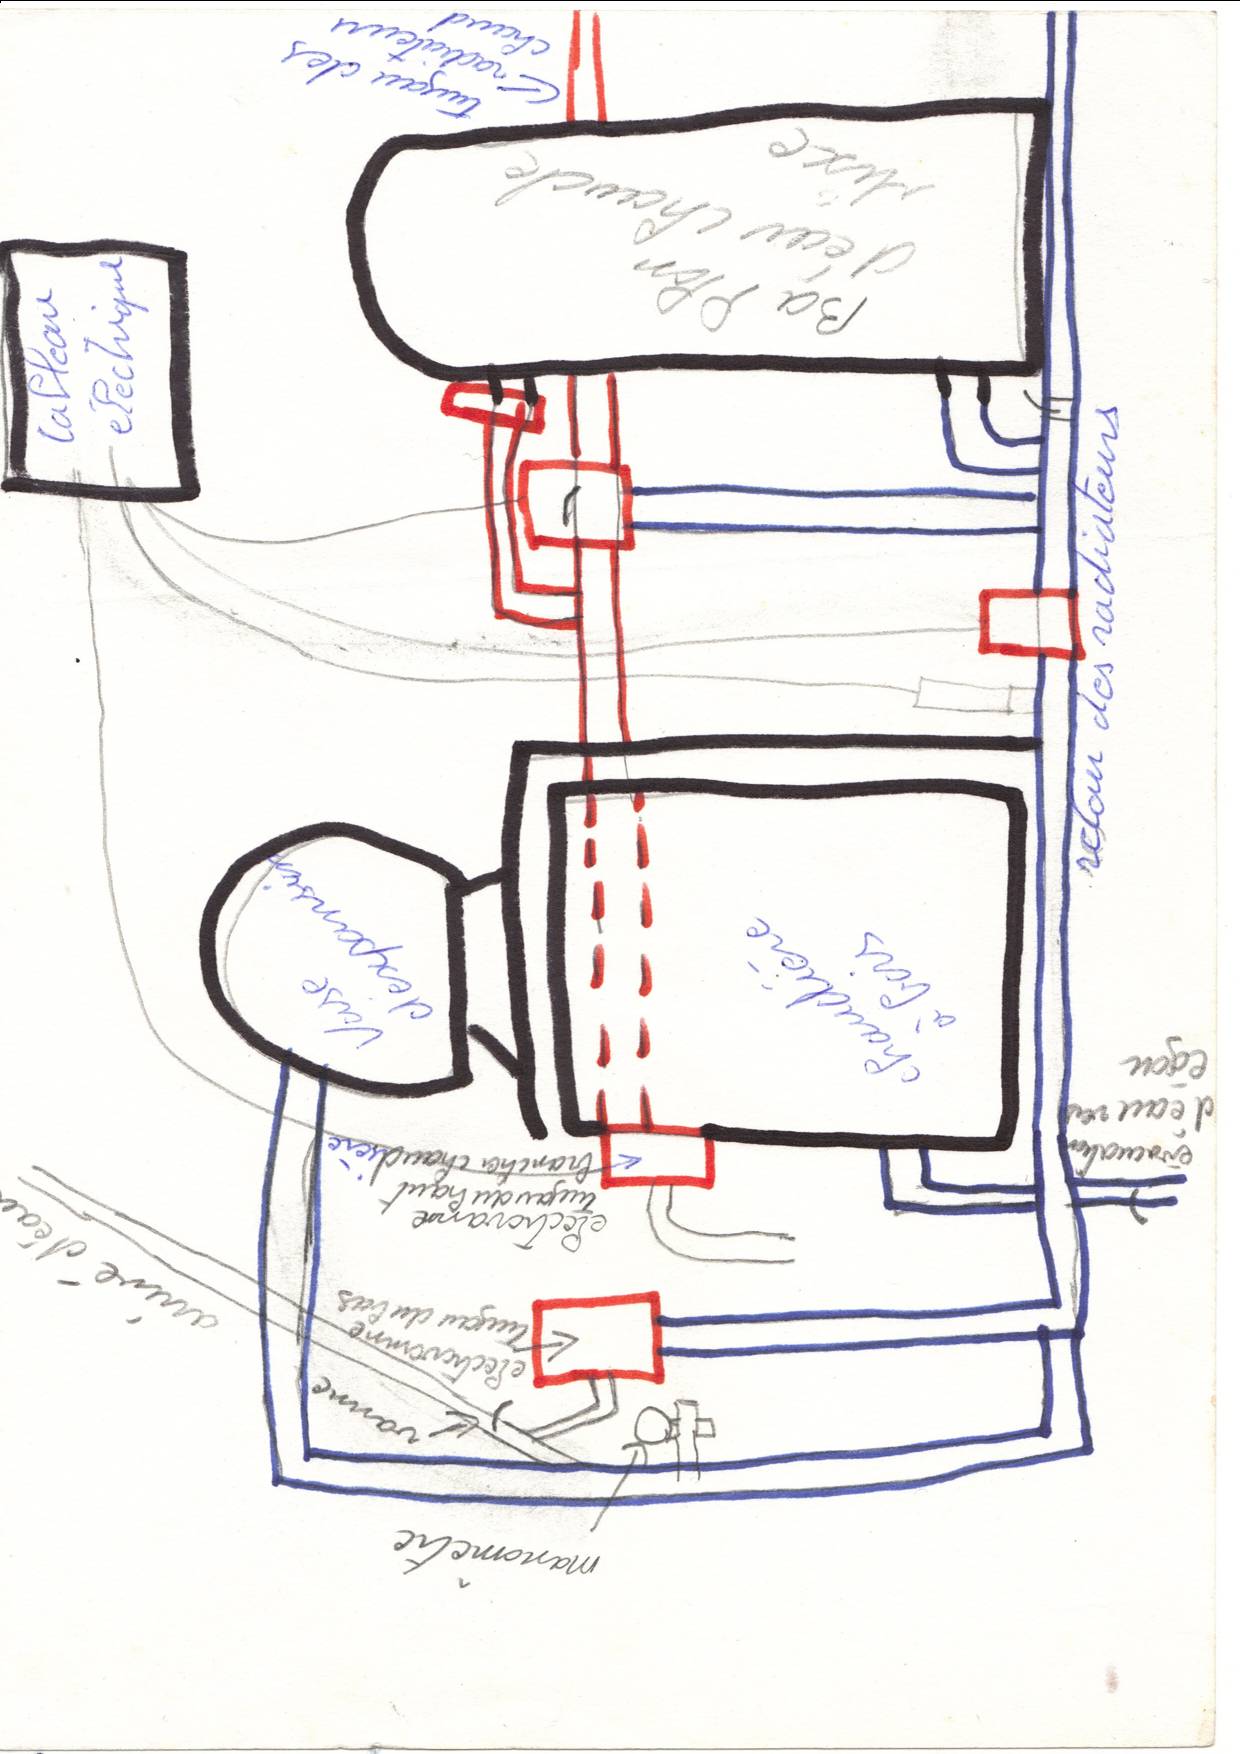 tuyau des
radiateurs
chaud
Ballon
d'eau chaude
Mixe
tableau
électrique
retour des radiateurs
Vase
d'expansion
chaudière
à bois
évacuation
d'eau vers
égou
electrovanne
tuyau du haut
brancher chaudière
electrovanne
tuyau du bas
arrivé d'eau
vanne
manomètre